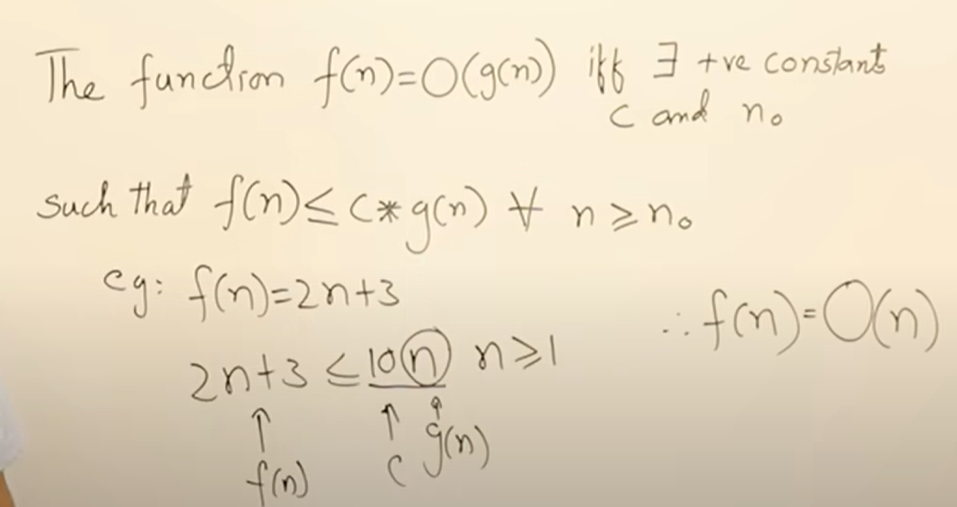 The function f(n)=O(g(n)) iff ∃ +ve constant
c and n₀
such that f(n)≤c*g(n) ∀ n≥n₀
eg: f(n)=2n+3
∴f(n)=O(n)
2n+3≤10n n≥1
↑ ↑ ↑
f(n) c g(n)